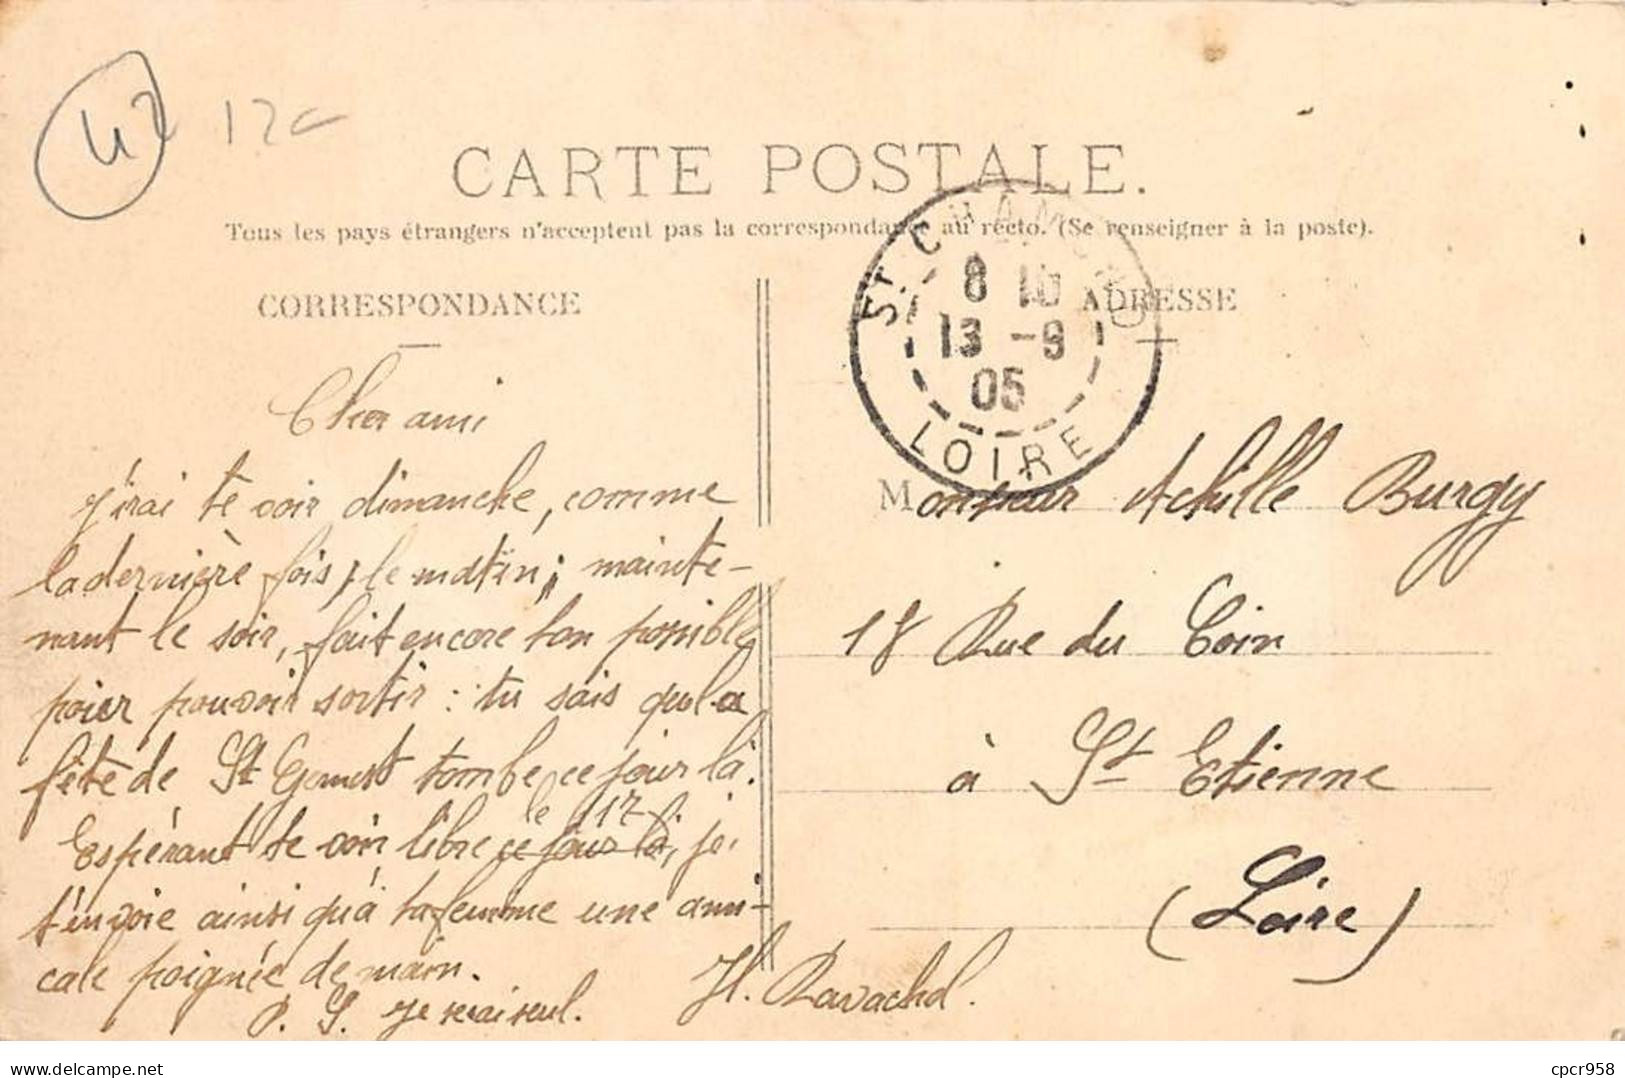 42 12c
CARTE POSTALE.
Tous les pays étrangers n'acceptent pas la correspondance au recto. (Se renseigner à la poste).
CORRESPONDANCE
ADRESSE
ST CHAMOND
8 10
13 -9
05
LOIRE
Cher ami
j'irai te voir dimanche, comme
la dernière fois, le matin; mainte-
nant le soir, fait encore ton possible
pour pouvoir sortir : tu sais que la
fête de St Genest tombe ce jour là.
le 17
Espérant te voir libre ce jour là, je
t'envoie ainsi qu'à ta femme une ami-
cale poignée de main.
P. S. Je serai seul.
H. Ravachol.
Monsieur Achille Burgy
18 Rue du Coin
à St Etienne
(Loire)
delcampe.net
cpcr958